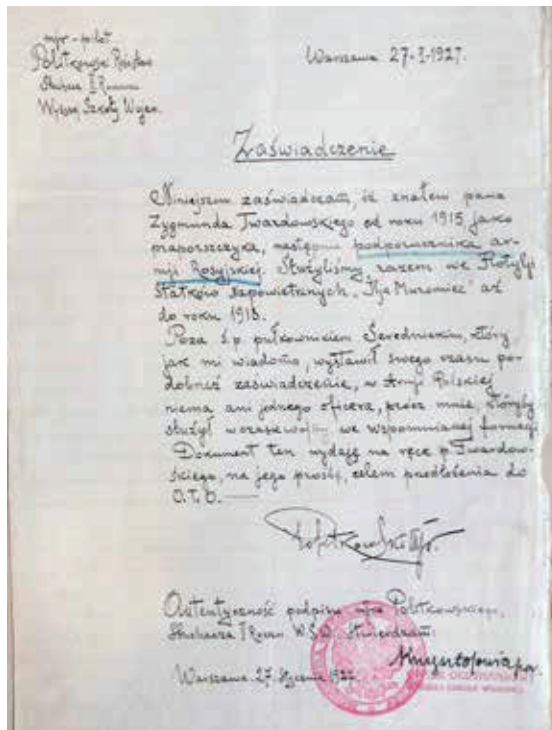 mjr-pilot
Słuchacz I Rocznu
Wyższej Szkoły Wojen.
Warszawa 27-I-1927.
Zaświadczenie
Niniejszem zaświadczam, iż znałem pana
Zygmunda Twardowskiego od roku 1915, jako
praporszczyka, następnie podporucznika ar-
mji Rosyjskiej. Służyliśmy razem we Flotylji
Statków Napowietrznych „Ilja Muromiec” aż
do roku 1918.
Poza ś.p. pułkownikiem Serednickim, który,
jak mi wiadomo, wystawił swego czasu po-
dobnież zaświadczenie, w Armji Polskiej
niema ani jednego oficera, prócz mnie, któryby
służył w czasie wojny we wspomnianej formacji
Dokument ten wydaję na ręce p. Twardow-
skiego, na jego prośbę, celem przedłożenia do
Autentyczność podpisu mjra Połtkowskiego,
Słuchacza I Roczn. W.S.W. stwierdzam:
Warszawa 27. Stycznia